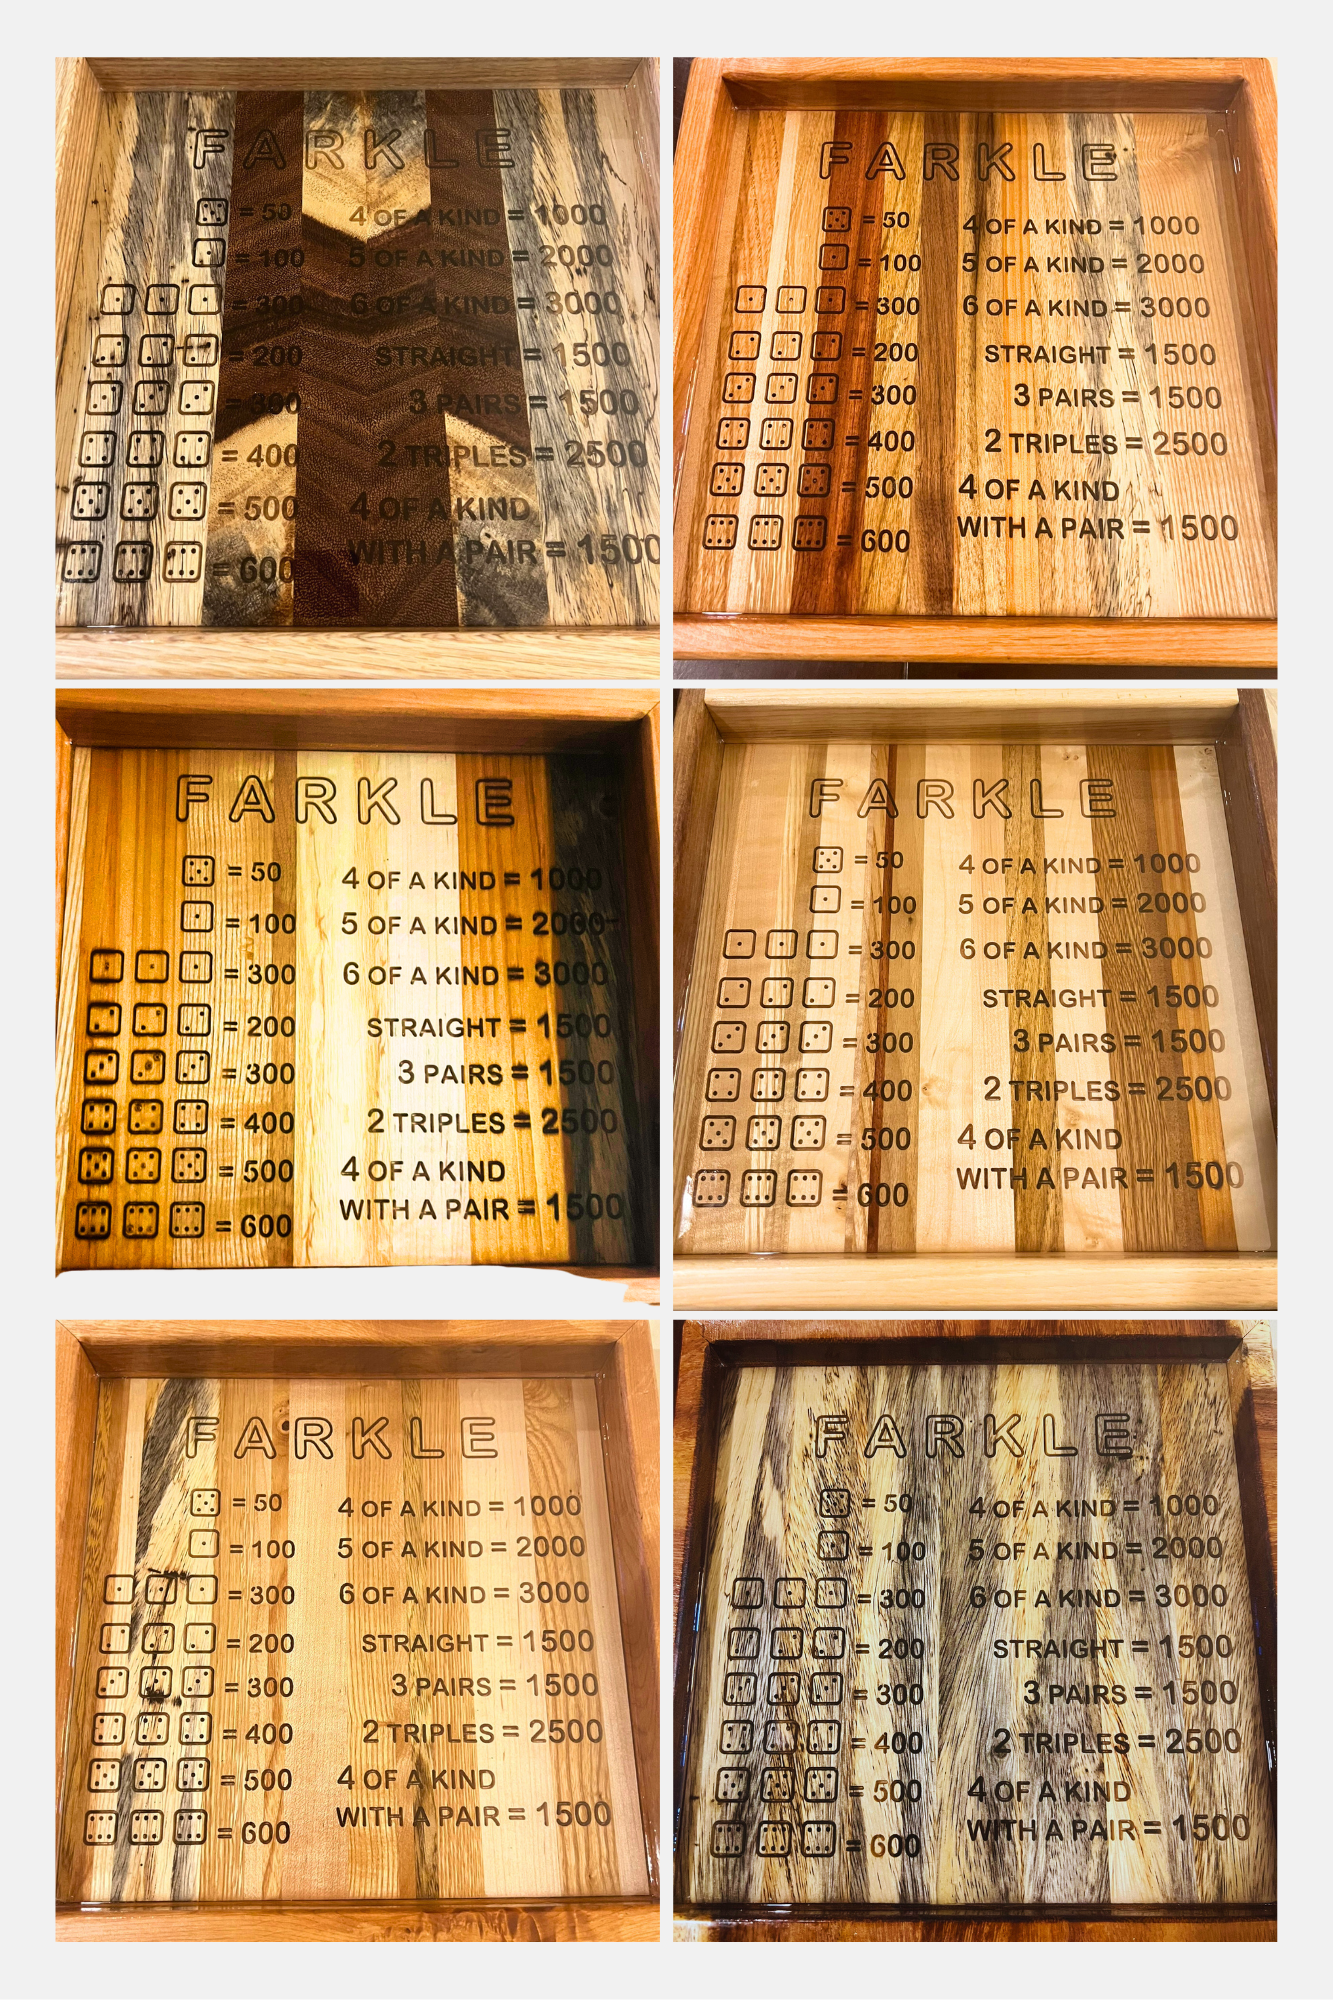 FARKLE
= 50
= 100
= 300
= 200
= 300
= 400
= 500
= 600
4 OF A KIND = 1000
5 OF A KIND = 2000
6 OF A KIND = 3000
STRAIGHT = 1500
3 PAIRS = 1500
2 TRIPLES = 2500
4 OF A KIND
WITH A PAIR = 1500
FARKLE
= 50
= 100
= 300
= 200
= 300
= 400
= 500
= 600
4 OF A KIND = 1000
5 OF A KIND = 2000
6 OF A KIND = 3000
STRAIGHT = 1500
3 PAIRS = 1500
2 TRIPLES = 2500
4 OF A KIND
WITH A PAIR = 1500
FARKLE
= 50
= 100
= 300
= 200
= 300
= 400
= 500
= 600
4 OF A KIND = 1000
5 OF A KIND = 2000
6 OF A KIND = 3000
STRAIGHT = 1500
3 PAIRS = 1500
2 TRIPLES = 2500
4 OF A KIND
WITH A PAIR = 1500
FARKLE
= 50
= 100
= 300
= 200
= 300
= 400
= 500
= 600
4 OF A KIND = 1000
5 OF A KIND = 2000
6 OF A KIND = 3000
STRAIGHT = 1500
3 PAIRS = 1500
2 TRIPLES = 2500
4 OF A KIND
WITH A PAIR = 1500
FARKLE
= 50
= 100
= 300
= 200
= 300
= 400
= 500
= 600
4 OF A KIND = 1000
5 OF A KIND = 2000
6 OF A KIND = 3000
STRAIGHT = 1500
3 PAIRS = 1500
2 TRIPLES = 2500
4 OF A KIND
WITH A PAIR = 1500
FARKLE
= 50
= 100
= 300
= 200
= 300
= 400
= 500
= 600
4 OF A KIND = 1000
5 OF A KIND = 2000
6 OF A KIND = 3000
STRAIGHT = 1500
3 PAIRS = 1500
2 TRIPLES = 2500
4 OF A KIND
WITH A PAIR = 1500